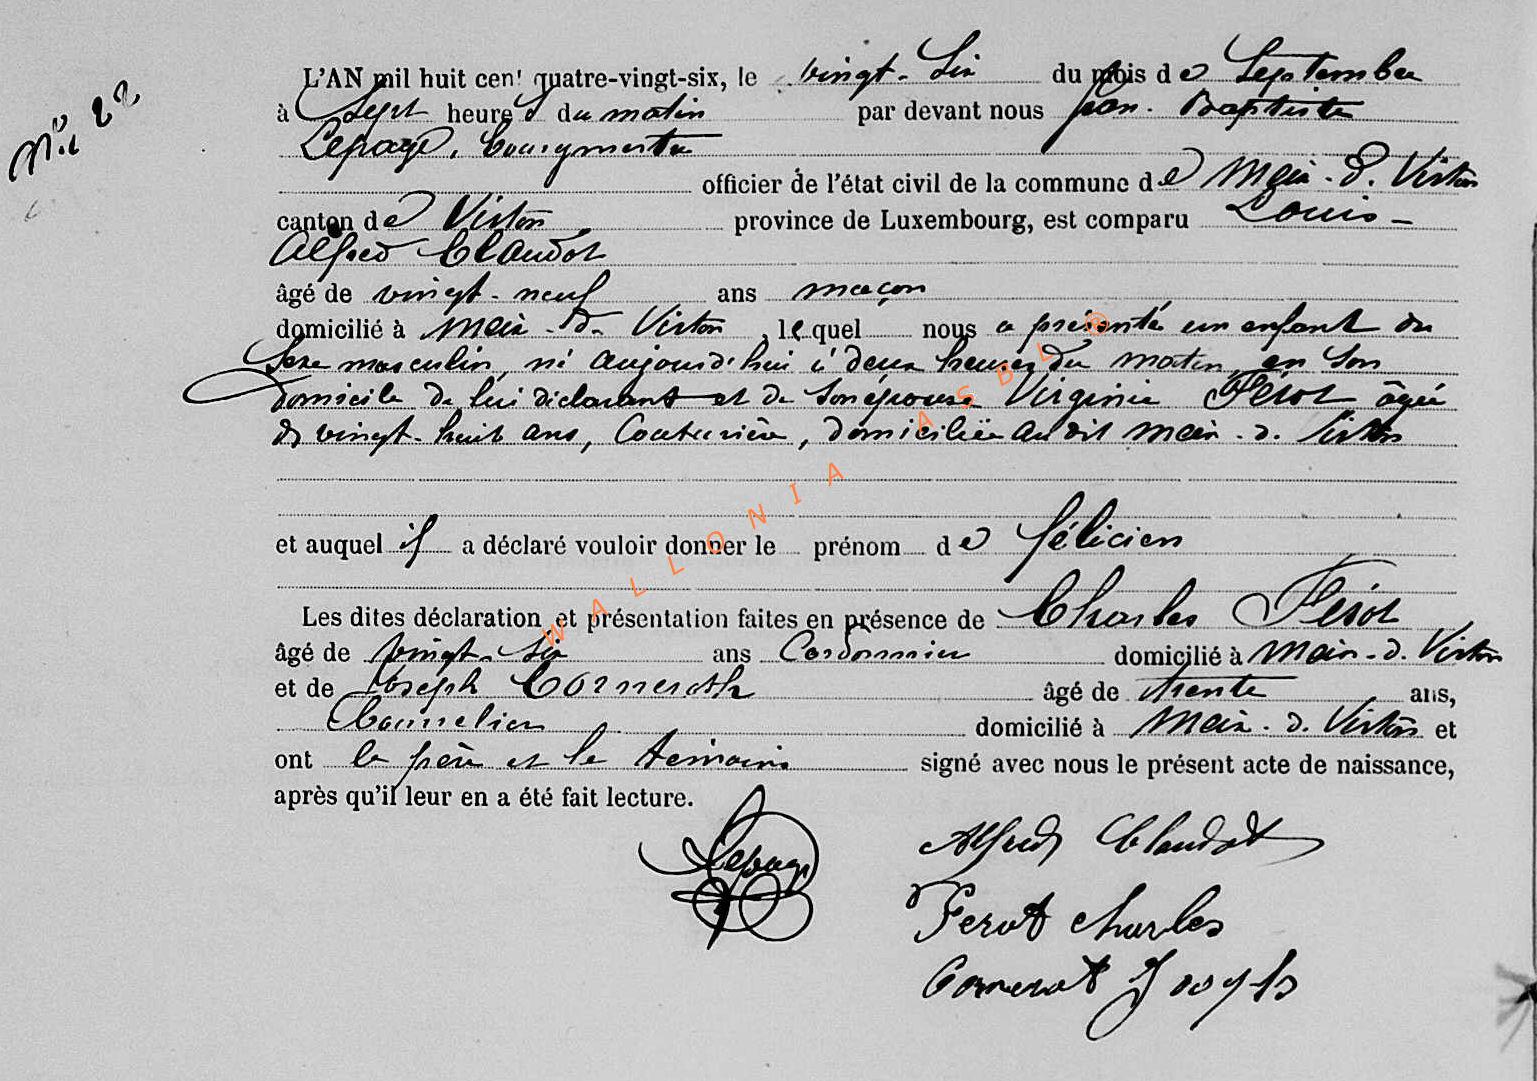 N° 22
L'AN mil huit cent quatre-vingt-six, le vingt-six du mois de Septembre
à Sept heures du matin par devant nous Jean-Baptiste
Lepage, bourgmestre
officier de l'état civil de la commune de Meix-d. Virton
canton de Virton province de Luxembourg, est comparu Louis-
Alfred Claudot
âgé de vingt-neuf ans maçon
domicilié à Meix-d. Virton, lequel nous a présenté un enfant du
Sexe masculin, né aujourd'hui à deux heures du matin, en son
domicile de lui déclarant et de son épouse Virginie Férot âgée
de vingt-huit ans, Couturière, domiciliée audit Meix-d. Virton
et auquel il a déclaré vouloir donner le prénom de Félicien
Les dites déclaration et présentation faites en présence de Charles Férot
âgé de vingt-six ans Cordonnier domicilié à Meix-d. Virton
et de Joseph Cornerotte âgé de trente ans,
domicilié à Meix-d. Virton et
ont le père et le témoins signé avec nous le présent acte de naissance,
après qu'il leur en a été fait lecture.
Lepage
Alfred Claudot
Ferot charles
Cornerot Joseph
WALLONIA ASBL ®